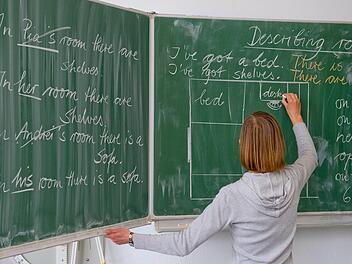 In Pia's room there are
shelves.
In her room there are
shelves.
In André's room there is a
sofa.
In his room there is a sofa.
Describing
I've got a bed. There is
I've got shelves. There are
bed
desk
on